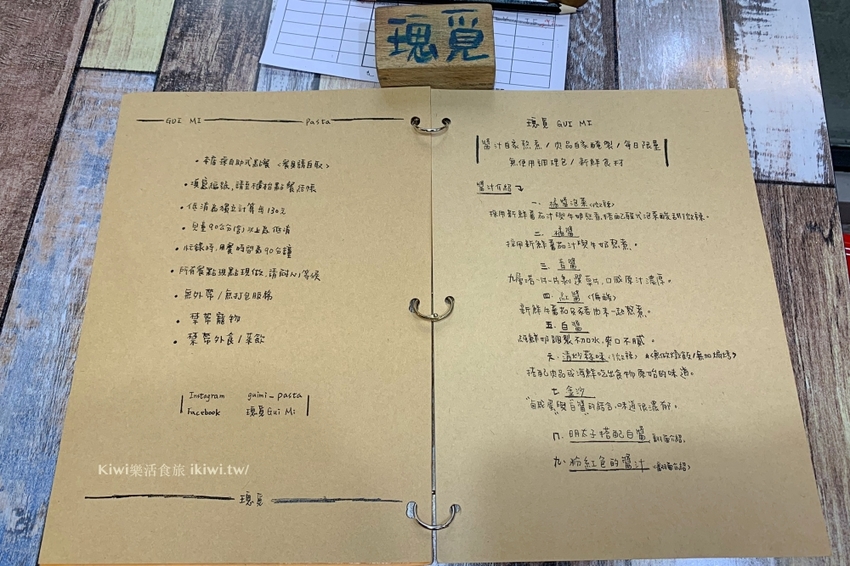 瑰覓
GUI MI Pasta
• 本店採自助式點餐〈餐具請自取〉
• 填寫編號,請至櫃檯點餐結帳
• 低消為獨立計算為130元
• 兒童90公分(含)以上為低消
• 忙錄時,用餐時間為90分鐘
• 所有餐點現點現做,請耐心等候
• 無外帶/無打包服務
• 禁帶寵物
• 禁帶外食/菜飲
Instagram guimi_pasta
Facebook 瑰覓Gui Mi
Kiwi樂活食旅 ikiwi.tw/
瑰覓
瑰覓 GUI MI
醬汁自家熬煮/肉品自家醃製/每日限量
無使用調理包/新鮮食材
醬汁介紹
一、橘醬泡菜(微辣)
採用新鮮蕃茄汁與牛奶熬煮,搭配韓式泡菜酸甜微辣。
二、橘醬
採用新鮮蕃茄汁與牛奶熬煮。
三、青醬
九層塔一片一片製選剪片,口感原汁濃厚。
四、紅醬(偏酸)
新鮮牛蕃茄
一起熬煮。
五、白醬
鮮奶調製不加水,爽口不膩。
六、清炒蒜味(微辣)
搭配肉品或海鮮吃出食物原始的味道。
七、金沙
"鹹蛋黃與白醬"的結合,味道很濃郁。
八、明太子搭配白醬
九、粉紅色的醬汁